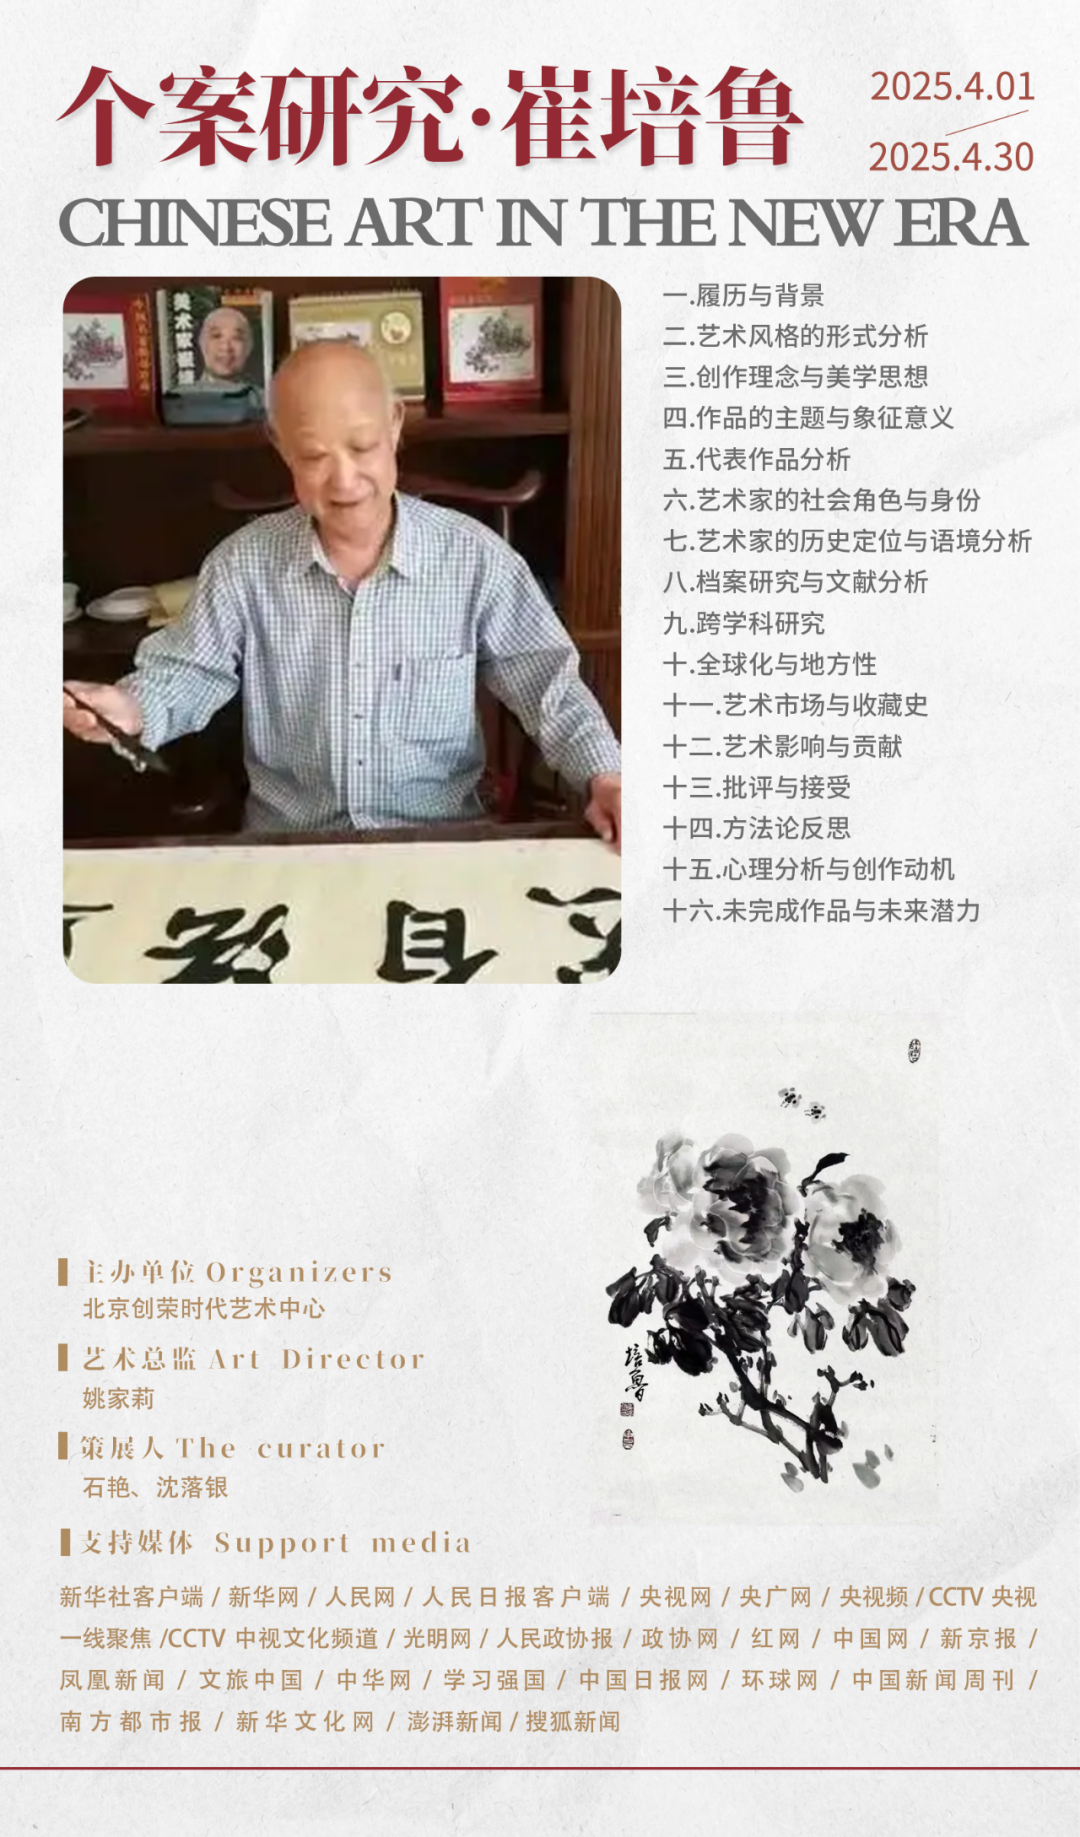 个案研究·崔培鲁
2025.4.01
2025.4.30
CHINESE ART IN THE NEW ERA
美术家
一.履历与背景
二.艺术风格的形式分析
三.创作理念与美学思想
四.作品的主题与象征意义
五.代表作品分析
六.艺术家的社会角色与身份
七.艺术家的历史定位与语境分析
八.档案研究与文献分析
九.跨学科研究
十.全球化与地方性
十一.艺术市场与收藏史
十二.艺术影响与贡献
十三.批评与接受
十四.方法论反思
十五.心理分析与创作动机
十六.未完成作品与未来潜力
培鲁
主办单位 Organizers
北京创荣时代艺术中心
艺术总监 Art Director
姚家莉
策展人 The curator
石艳、沈落银
支持媒体 Support media
新华社客户端 / 新华网 / 人民网 / 人民日报客户端 / 央视网 / 央广网 / 央视频 / CCTV 央视
一线聚焦 /CCTV 中视文化频道 / 光明网 / 人民政协报 / 政协网 / 红网 / 中国网 / 新京报 /
凤凰新闻 / 文旅中国 / 中华网 / 学习强国 / 中国日报网 / 环球网 / 中国新闻周刊 /
南方都市报 / 新华文化网 / 澎湃新闻 / 搜狐新闻